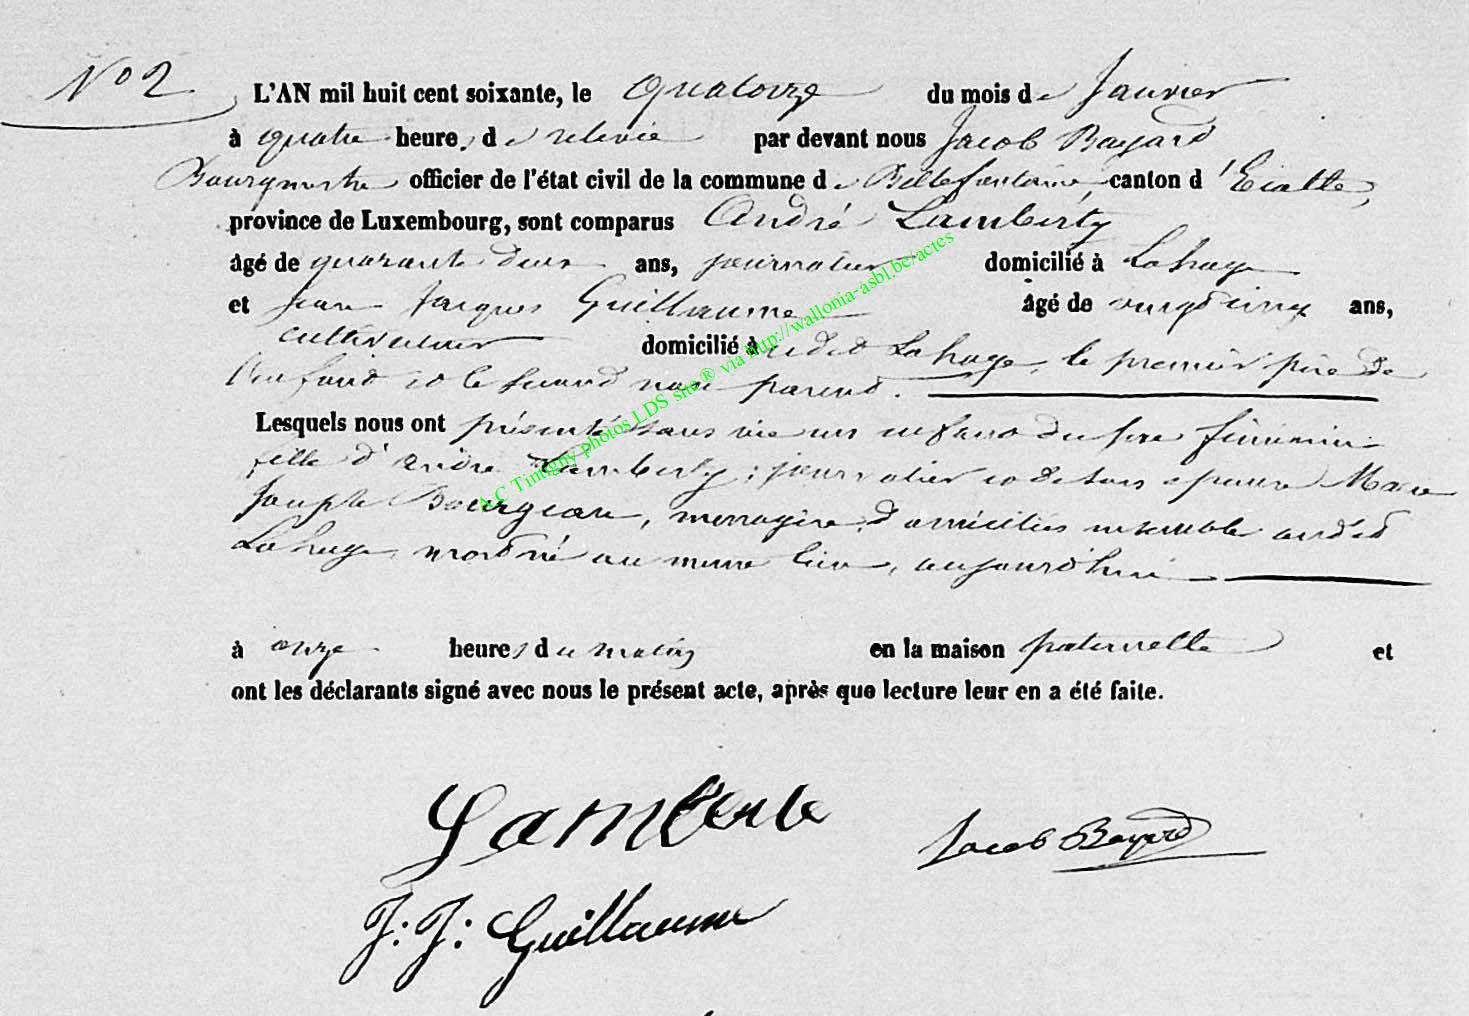 No 2
L'AN mil huit cent soixante, le quatorze du mois de Janvier
à quatre heures de relevée par devant nous Jacob Bayard
Bourgmestre officier de l'état civil de la commune de Bellefontaine, canton d'Etalle,
province de Luxembourg, sont comparus André Lamberty
âgé de quarante deux ans, journalier domicilié à Lahage
et Jean Jacques Guillaume âgé de vingt cinq ans,
cultivateur domicilié à udit Lahage, le premier père de
l'enfant et le second non parent.
Lesquels nous ont présenté sans vie un enfant du sexe féminin
fille d'andré Lamberty, journalier et de son épouse Marie
Josèphe Bourgeau, ménagère, domiciliés ensemble audit
Lahage, mort né au même lieu, aujourd'hui
à onze heures du matin en la maison paternelle et
ont les déclarants signé avec nous le présent acte, après que lecture leur en a été faite.
Lamberte
Jacob Bayard
J: J: Guillaume
A.C Tintigny photos LDS site ® via http://wallonia-asbl.be/actes